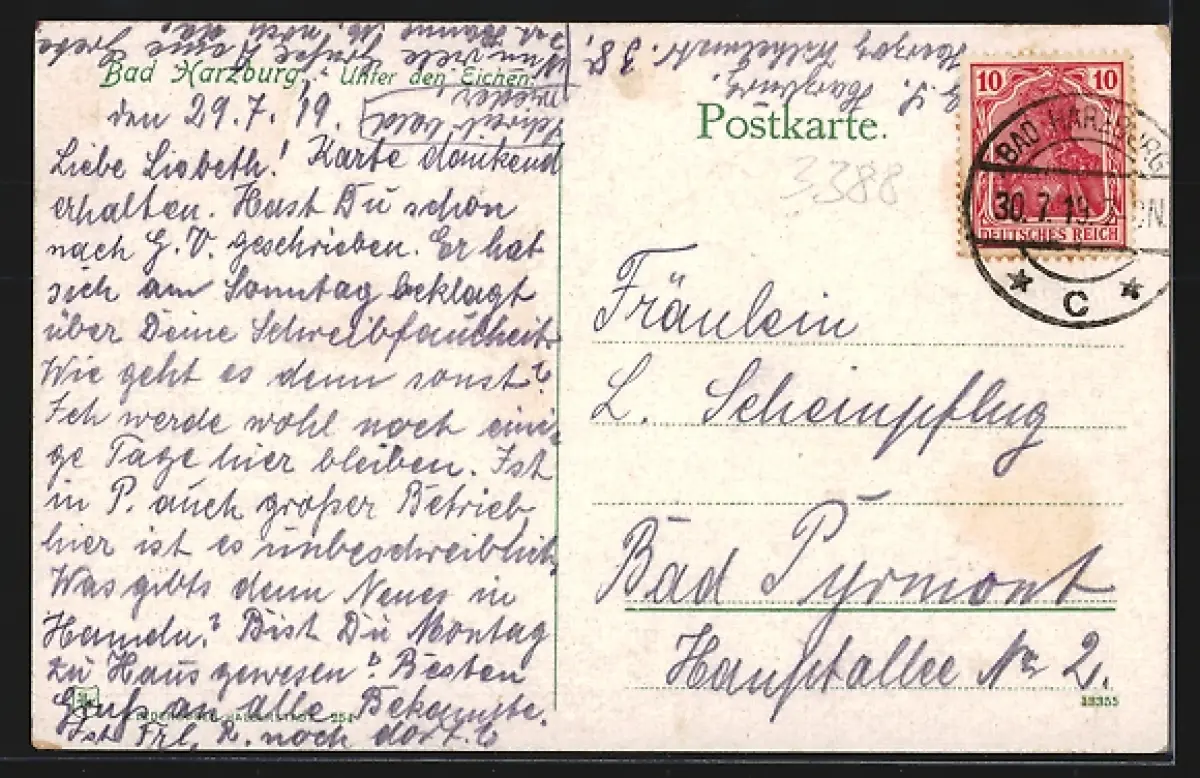 Bad Harzburg, Unter den Eichen.
den 29.7.19.
Liebe Lisbeth! Karte dankend
erhalten. Hast Du schon
nach G. V. geschrieben. Er hat
sich am Sonntag beklagt
über Deine Schreibfaulheit.
Wie geht es denn sonst?
Ich werde wohl noch eini-
ge Tage hier bleiben. Ist
in P. auch großer Betrieb
hier ist es unbeschreiblich.
Was gibts denn Neues in
Hameln? Bist Du Montag
zu Haus gewesen? Besten
Gruß an alle Bekannte.
Ist Frl. K. noch dort?
Schreib bald
wieder
Nun viele Grüße Deine Grete
Harzburg
Herzog Wilhelmstr. 38
Postkarte.
3388
10 10
DEUTSCHES REICH
BAD HARZBURG
30.7.19.
* C *
Fräulein
L. Scheinpflug
Bad Pyrmont
Hauptallee Nr 2.
13355